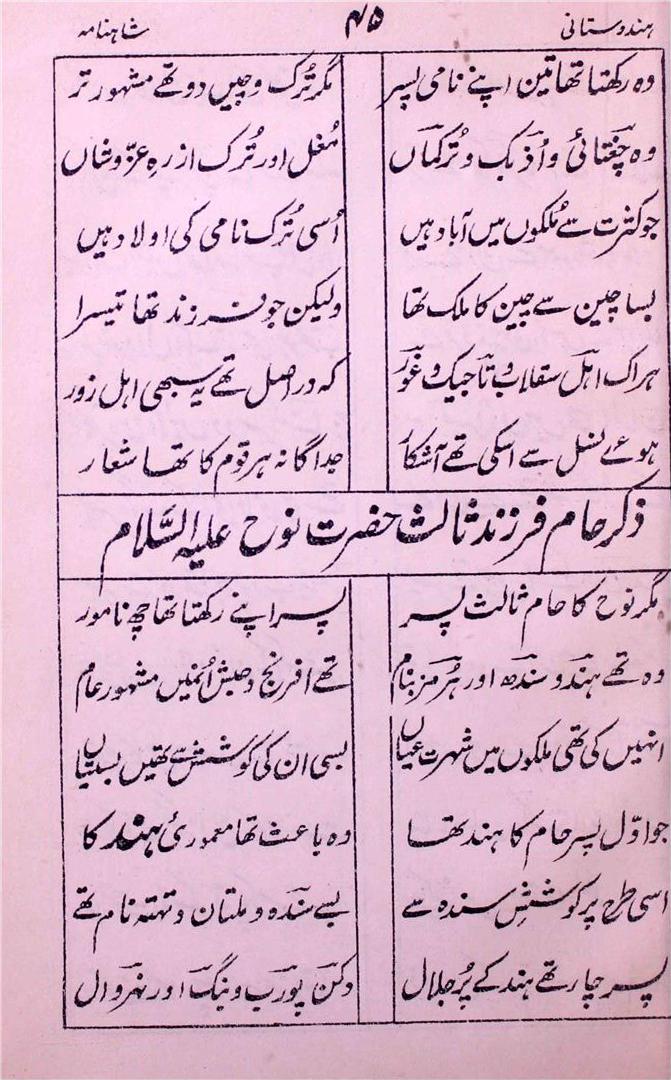 ہندوستانی ۴۵ شاہنامہ
وہ رکھتا تھا تین اپنے نامی پسر مگر تُرک و چیں دو تھے مشہور تر
وہ چغتائی و اُذبک و تُرکماں مُغل اور تُرک از رہِ عزّ و شاں
جو کثرت سے مُلکوں میں آباد ہیں اُسی تُرک نامی کی اولاد ہیں
بسا چین سے چین کا ملک تھا ولیکن جو فرزند تھا تیسرا
ہر اک اہل سقلاب و تاجیک و غور کہ در اصل تھے یہ سبھی اہل زور
ہوئے نسل سے اسکی تھے آشکار جداگانہ ہر قوم کا تھا شعار
ذکر حام فرزند ثالث حضرت نوح علیہ السَّلام
مگر نوح کا حام ثالث پسر پسر اپنے رکھتا تھا چھ نامور
وہ تھے ہند و سندھ اور ہُرمز بنام تھے افرنج و حبش اُنمیں مشہور عام
انہیں کی تھی ملکوں میں شہرت عیاں بسی ان کی کوشش سے تھیں بستیاں
جو اوّل پسر حام کا ہند تھا وہ باعث تھا معموریٔ ہند کا
اسی طرح پر کوششِ سندہ سے بسے سندہ و ملتان و تہتہ نام تھے
پسر چار تھے ہند کے پُر جلال دکن پورب و بنگ اور نہروال